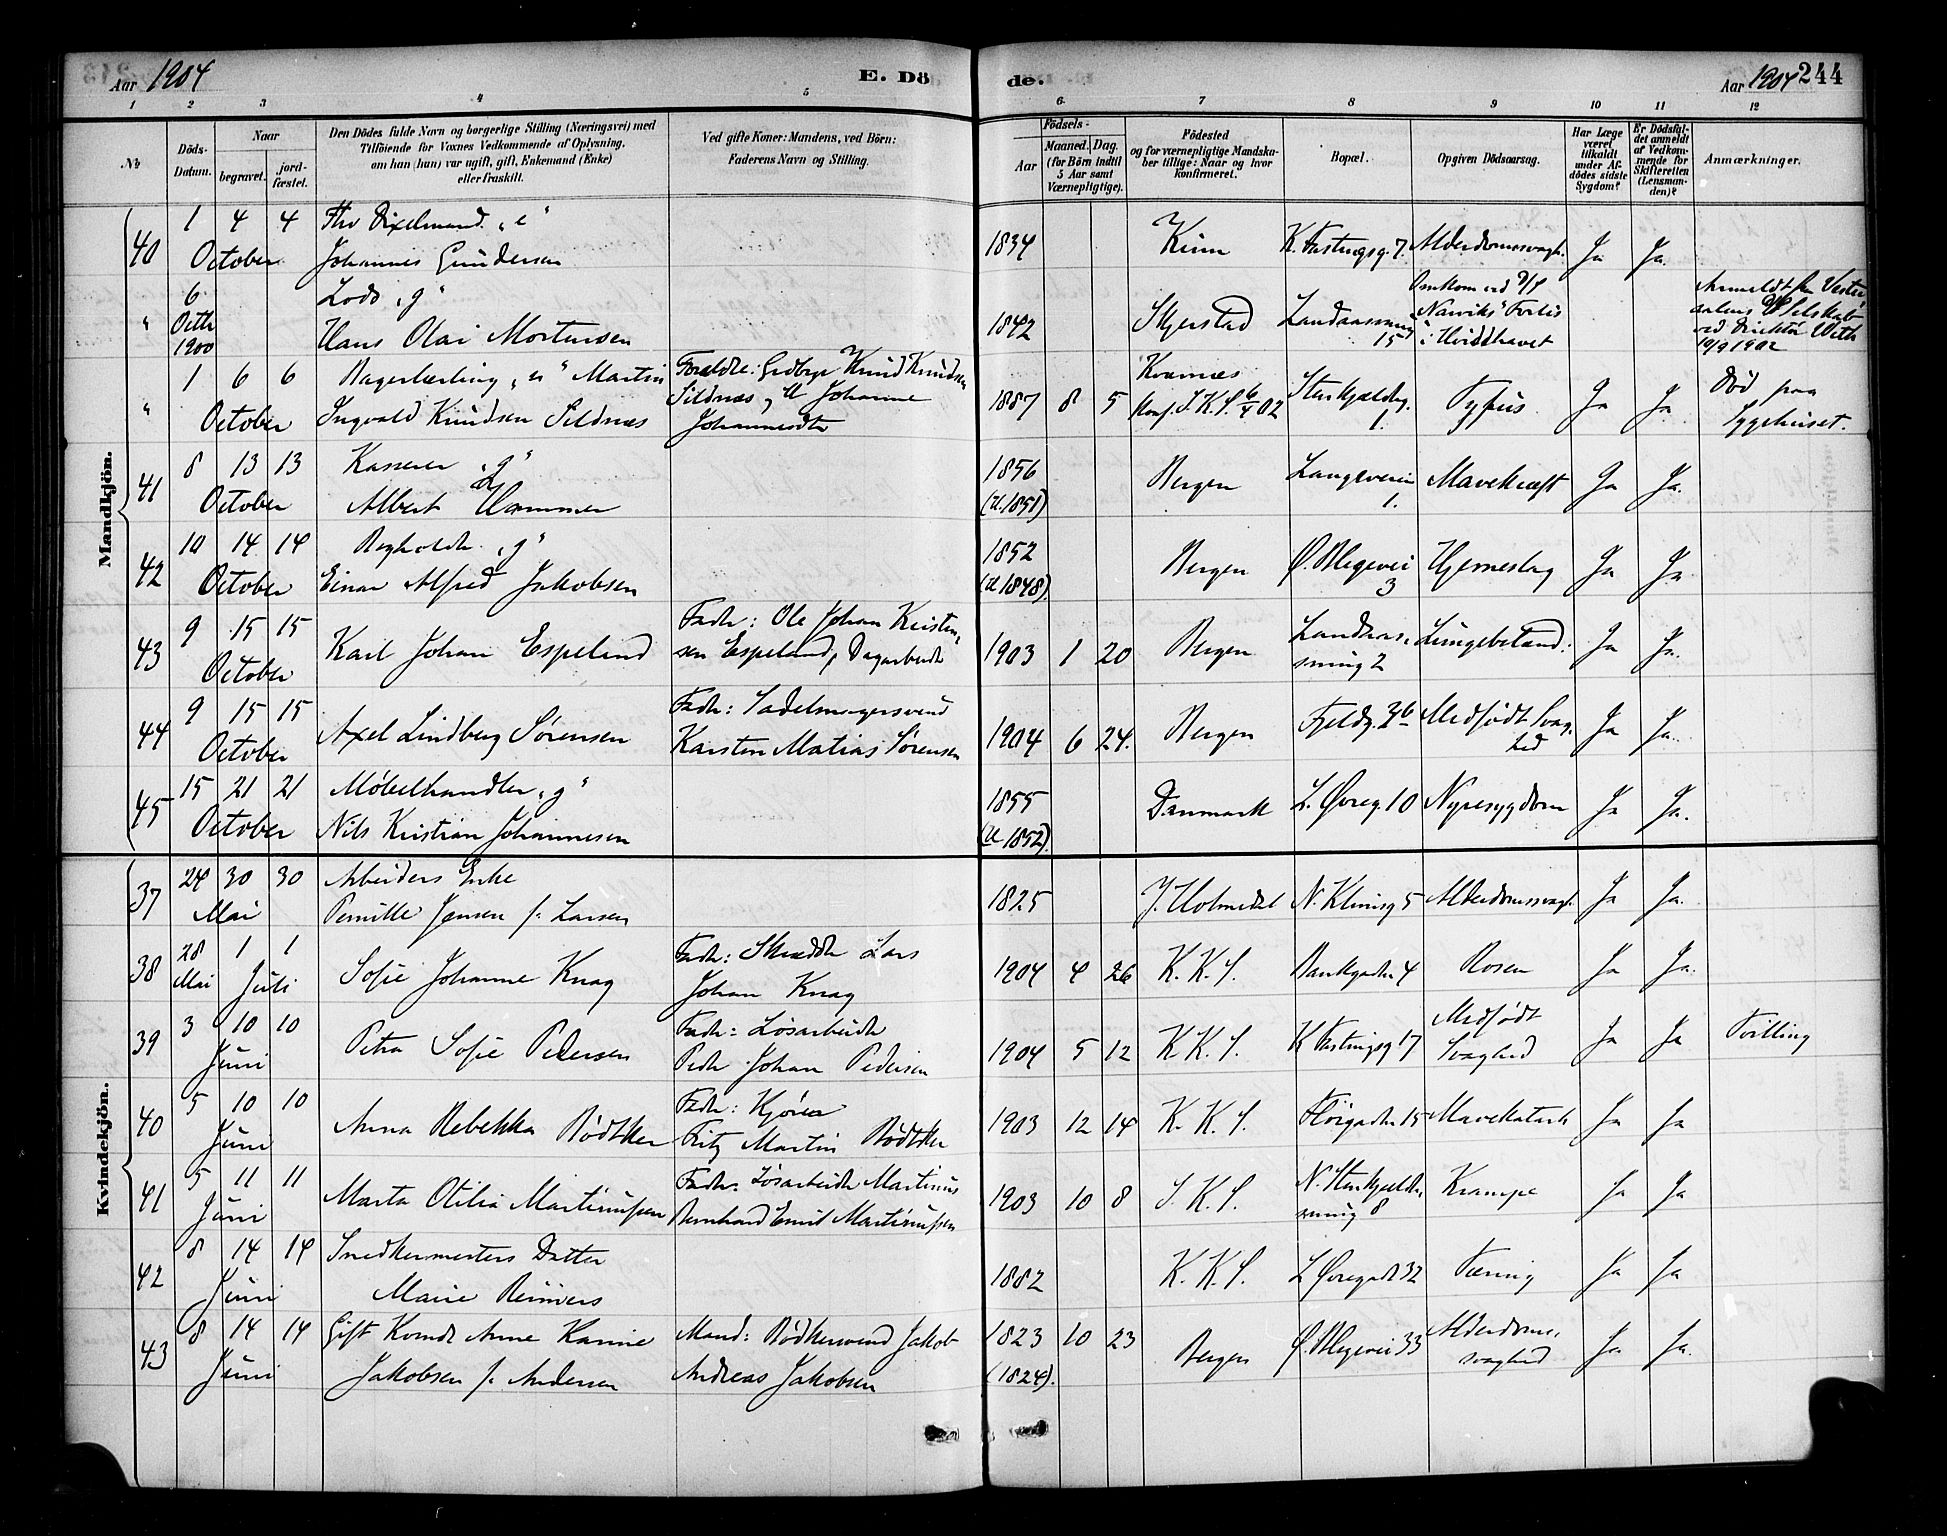 Aar 1904
E. Dö
de.
Aar 1904 244
1 2 3 4 5 6. 7 8 9 10 11 12
No
Döds-Datum.
Naar
begravet.
jord-fæstet.
Den Dödes fulde Navn og borgerlige Stilling (Næringsvei) med
Tilföiende for Voxnes Vedkommende af Oplysning,
om han (hun) var ugift, gift, Enkemand (Enke)
eller fraskilt.
Ved gifte Koner: Mandens, ved Börn:
Faderens Navn og Stilling.
Födsels-
Aar
Maaned. Dag.
(for Börn indtil
5 Aar samt
Værnepligtige).
Födested
og for værnepligtige Mandska-
ber tillige: Naar og hvor
konfirmeret.
Bopæl.
Opgiven Dödsaarsag.
Har Læge
været
tilkaldt
under Af-
dödes sidste
Sygdom?
Er Dödsfal-
det anmeldt
af Vedkom-
mende for
Skifteretten
(Lensman-
den)?
Anmærkninger.
Mandkjön.
40 1 4 4 October "e" Johannes Gundersen 1834 Kinn K. Fastingsg. 7. Alderdomssvagh. Ja Ja.
" 6 Octb 1900 Lods "g" Hans Olai Mortensen 1842 Skjerstad 15 Omkom ved D/S "Narviks" Forlis i Hvidehavet 10/9 1902
" 1 6 6 October Martin Ingvald Knudsen Sildnæs Forældre: Knud Knudsen Sildnæs, Johanne Johannesdtr 1887 8 5 Kvernæs Konf. S.K.S. 6/4 02 1. Tyfus Ja Ja Död paa Sygehuset.
41 8 13 13 October Kasserer "g" Albert Hammer 1856 (u. 1851) Bergen Langeveien 1. Mavekræft Ja Ja.
42 10 14 14 October Bogholdr. "g" Einar Alfred Jakobsen 1852 (u 1848). Bergen Ø. Blegevei 3 Hjerneslag Ja Ja
43 9 15 15 October Karl Johan Espeland Fadr: Ole Johan Kristensen Espeland, Dagarbeidr 1903 1 20 Bergen 2 Lungebetænd: Ja Ja.
44 9 15 15 October Axel Lindberg Sørensen Fadr: Sadelmagersvend Karsten Matias Sørensen 1904 6 24. Bergen Fjeldg. Medfødt Svaghed Ja Ja.
45 15 21 21 October Møbelhandler "g" Nils Kristian Johannesen 1855 (u 1852). Danmark L. Øvreg. 10 Nyresygdom Ja Ja.
Kvindekjön.
37 24 30 30 Mai Arbeiders Enke Pernille Jensen f. Larsen 1825 Y. Holmedal 5 Alderdomssvagh. Ja Ja.
38 28 Mai 1 1 Juli Sofie Johanne Knag Fadr: Skræddr Lars Johan Knag 1904 4 26 K. K. S. 4 Rosen Ja Ja.
39 3 10 10 Juni Petra Sofie Pedersen Fadr: Løsarbeidr Pedr Johan Pedersen 1904 5 12 K. K. S. K Fastingsg 17 Medfødt Svaghed Ja Ja Tvilling
40 5 10 10 Juni Anna Rebekka Bødtker Fadr: Kjører Fritz Martin Bødtker 1903 12 14 K. K. S. 15 Mavekatarrh Ja Ja
41 5 11 11 Juni Marta Otilia Martinussen Fadr: Løsarbeidr Martinus Bernhard Emil Martinussen 1903 10 8 S. K. S. 8 Krampe Ja Ja
42 8 14 14 Juni Snedkermesters Datter Marie Reimers 1882 K. K. S. L Øvregade 32 Tæring Ja Ja
43 8 14 14 Juni Gift Kvinde Anne Karine Jakobsen f. Andersen Mand: Bødkersvend Jakob Andreas Jakobsen 1823 10 23 (1824). Bergen Ø. Blegevei 33 Alderdomssvaghed Ja Ja.